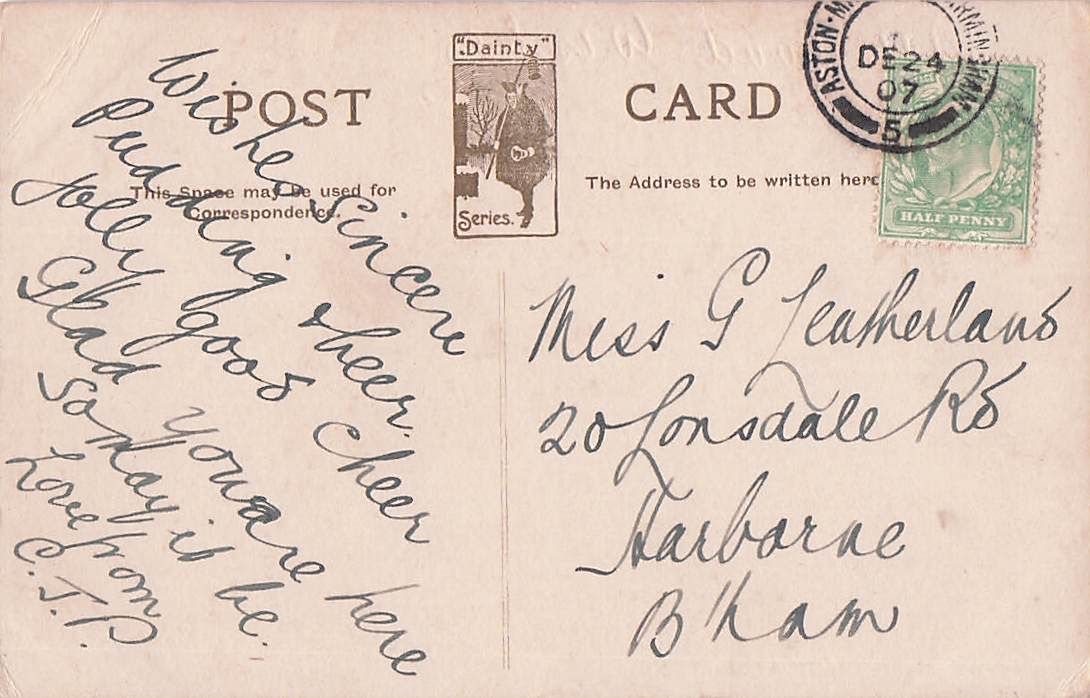 "Dainty"
Series.
POST CARD
This Space may be used for
Correspondence.
The Address to be written here
ASTON·M BIRMINGHAM
DE 24
07
5
HALF PENNY
Wishes Sincere
Pudding & beer.
Jolly good Cheer
Glad you are here
So May it be.
Love from
C.J.P.
Miss G Leatherland
20 Lonsdale Rd
Harborne
B'ham